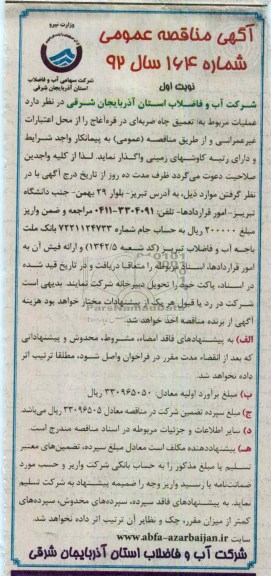 وزارت نیرو
شرکت سهامی آب و فاضلاب
استان آذربایجان شرقی
آگهی مناقصه عمومی
شماره ۱۶۴ سال ۹۲
نوبت اول
شرکت آب و فاضلاب استان آذربایجان شرقی در نظر دارد
عملیات مربوط به: تعمیق چاه ضربه‌ای در قره‌آغاج را از محل اعتبارات
غیرعمرانی و از طریق مناقصه (عمومی) به پیمانکار واجد شرایط
و دارای رتبه کاوشهای زمینی واگذار نماید. لذا از کلیه واجدین
صلاحیت دعوت می‌گردد ظرف مدت ده روز از تاریخ درج آگهی با در
نظر گرفتن موارد ذیل، به آدرس تبریز- بلوار ۲۹ بهمن- جنب دانشگاه
تبریز- امور قراردادها- تلفن: ۳۳۰۴۰۹۱-۰۴۱۱ مراجعه و ضمن واریز
مبلغ ۲۰۰۰۰۰ ریال به حساب جام شماره ۷۲۲۱۱۲۴۷۲۳ بانک ملت
باجه آب و فاضلاب تبریز (کد شعبه ۱۳۴۲/۵) و ارائه فیش آن به
امور قراردادها، اسناد مربوطه را متعاقبا دریافت و در تاریخ قید شده
در اسناد، پاکت خود را تحویل دبیرخانه شرکت نمایند. بدیهی است
شرکت در رد یا قبول هر یک از پیشنهادات مختار خواهد بود هزینه
آگهی از برنده مناقصه اخذ خواهد شد.
الف) به پیشنهادهای فاقد امضاء، مشروط، مخدوش و پیشنهاداتی
که بعد از انقضاء مدت مقرر در فراخوان واصل شود، مطلقا ترتیب اثر
داده نخواهد شد.
ب) مبلغ برآورد اولیه معادل: ۳۳۰۹۶۵۰۵۰ ریال
ج) مبلغ سپرده تضمین شرکت در مناقصه معادل ۳۳۰۹۶۵۰۵ ریال می‌باشد.
د) سایر اطلاعات و جزئیات مربوطه در اسناد مناقصه مندرج است.
هـ) پیشنهاددهنده مکلف است معادل مبلغ سپرده، تضمین‌های معتبر
تسلیم یا مبلغ مذکور را به حساب بانکی شرکت واریز و حسب مورد
ضمانت‌نامه یا رسید واریز وجه را ضمیمه پیشنهاد به شرکت تسلیم
نماید. به پیشنهادهای فاقد سپرده، سپرده‌های مخدوش، سپرده‌های
کمتر از میزان مقرر، چک و نظایر آن ترتیب اثر داده نخواهد شد.
سایت www.abfa-azarbaijan.ir
شرکت آب و فاضلاب استان آذربایجان شرقی